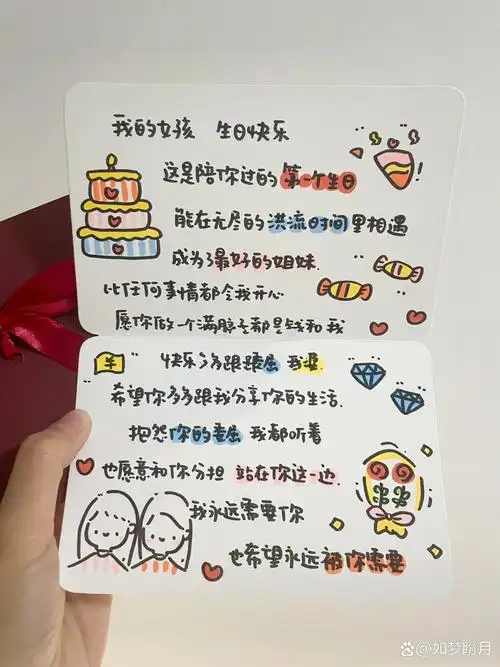 我的女孩 生日快乐
这是陪你过的第一个生日
能在无尽的洪流时间里相遇
成为了最好的姐妹.
比任何事情都令我开心
愿你做一个满脑子都是钱和我
快乐多多跟跟委屈 我婆
希望你多多跟我分享你的生活.
抱怨你的委屈 我都听着
也愿意和你分担 站在你这一边.
我永远需要你
也希望永远被你需要
Baidu百科@如梦盼月